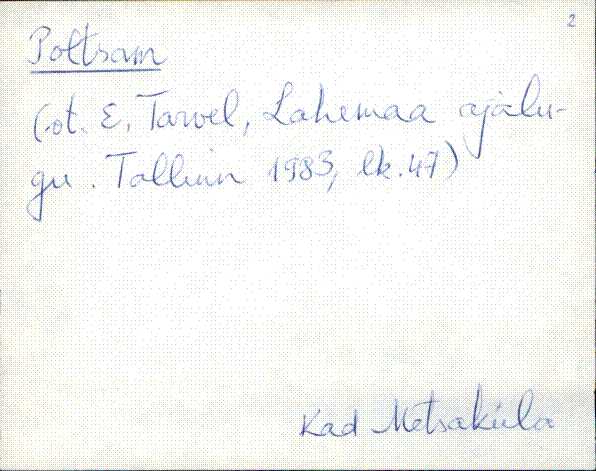 2
Poltsam
(vt. E. Tarvel, Lahemaa ajalu-
gu. Tallinn 1983, lk. 47)
Kad Metsaküla